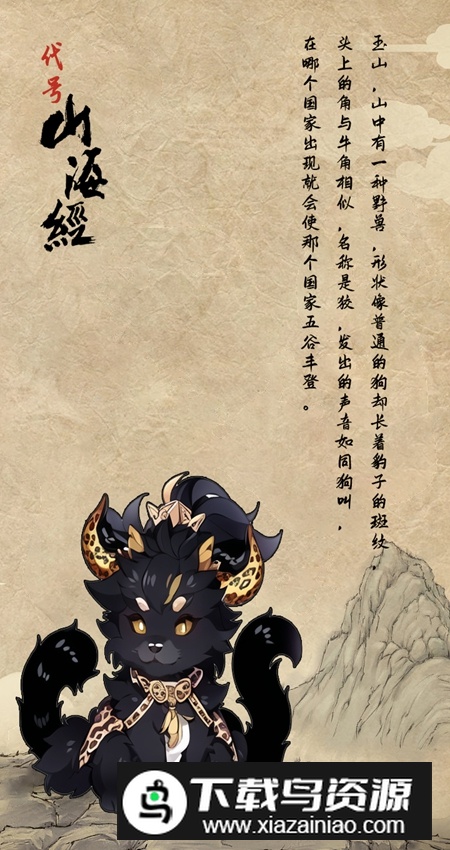 代号
山海經
玉山，山中有一种野兽，形状像普通的狗却长着豹子的斑纹，
头上的角与牛角相似，名称是狡，发出的声音如同狗叫，
在哪个国家出现就会使那个国家五谷丰登。
下载鸟资源
www.xiazainiao.com